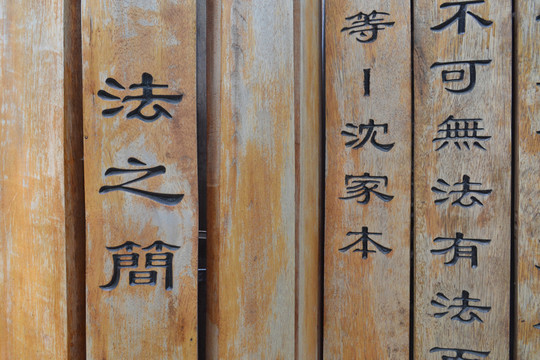 不可無法有法而
等—沈家本
法之簡